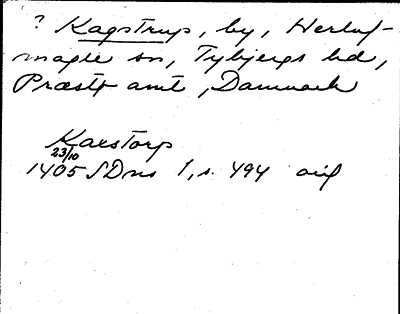 ? Kagstrup, by, Herluf-
magle sn, Tybjergs hd,
Præstø amt, Danmark
Kaxstorp
23/10
1405 SDns 1, s. 494 orig